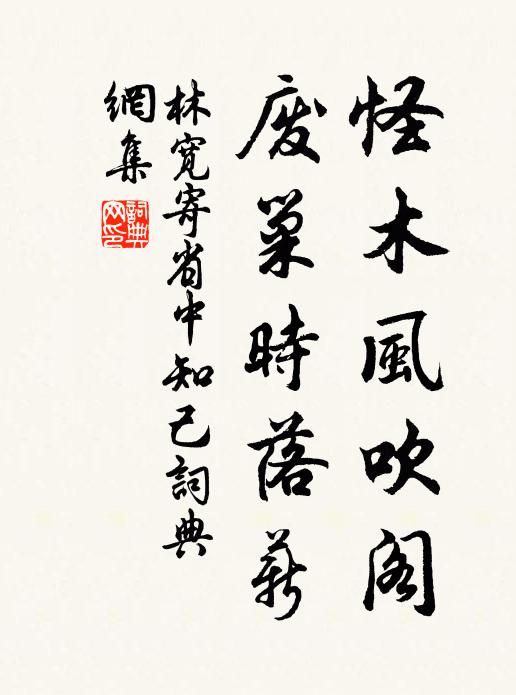 怪木風吹閣
廢巢時落薪
林寬寄省中知己詞典
網集
詞典
网印